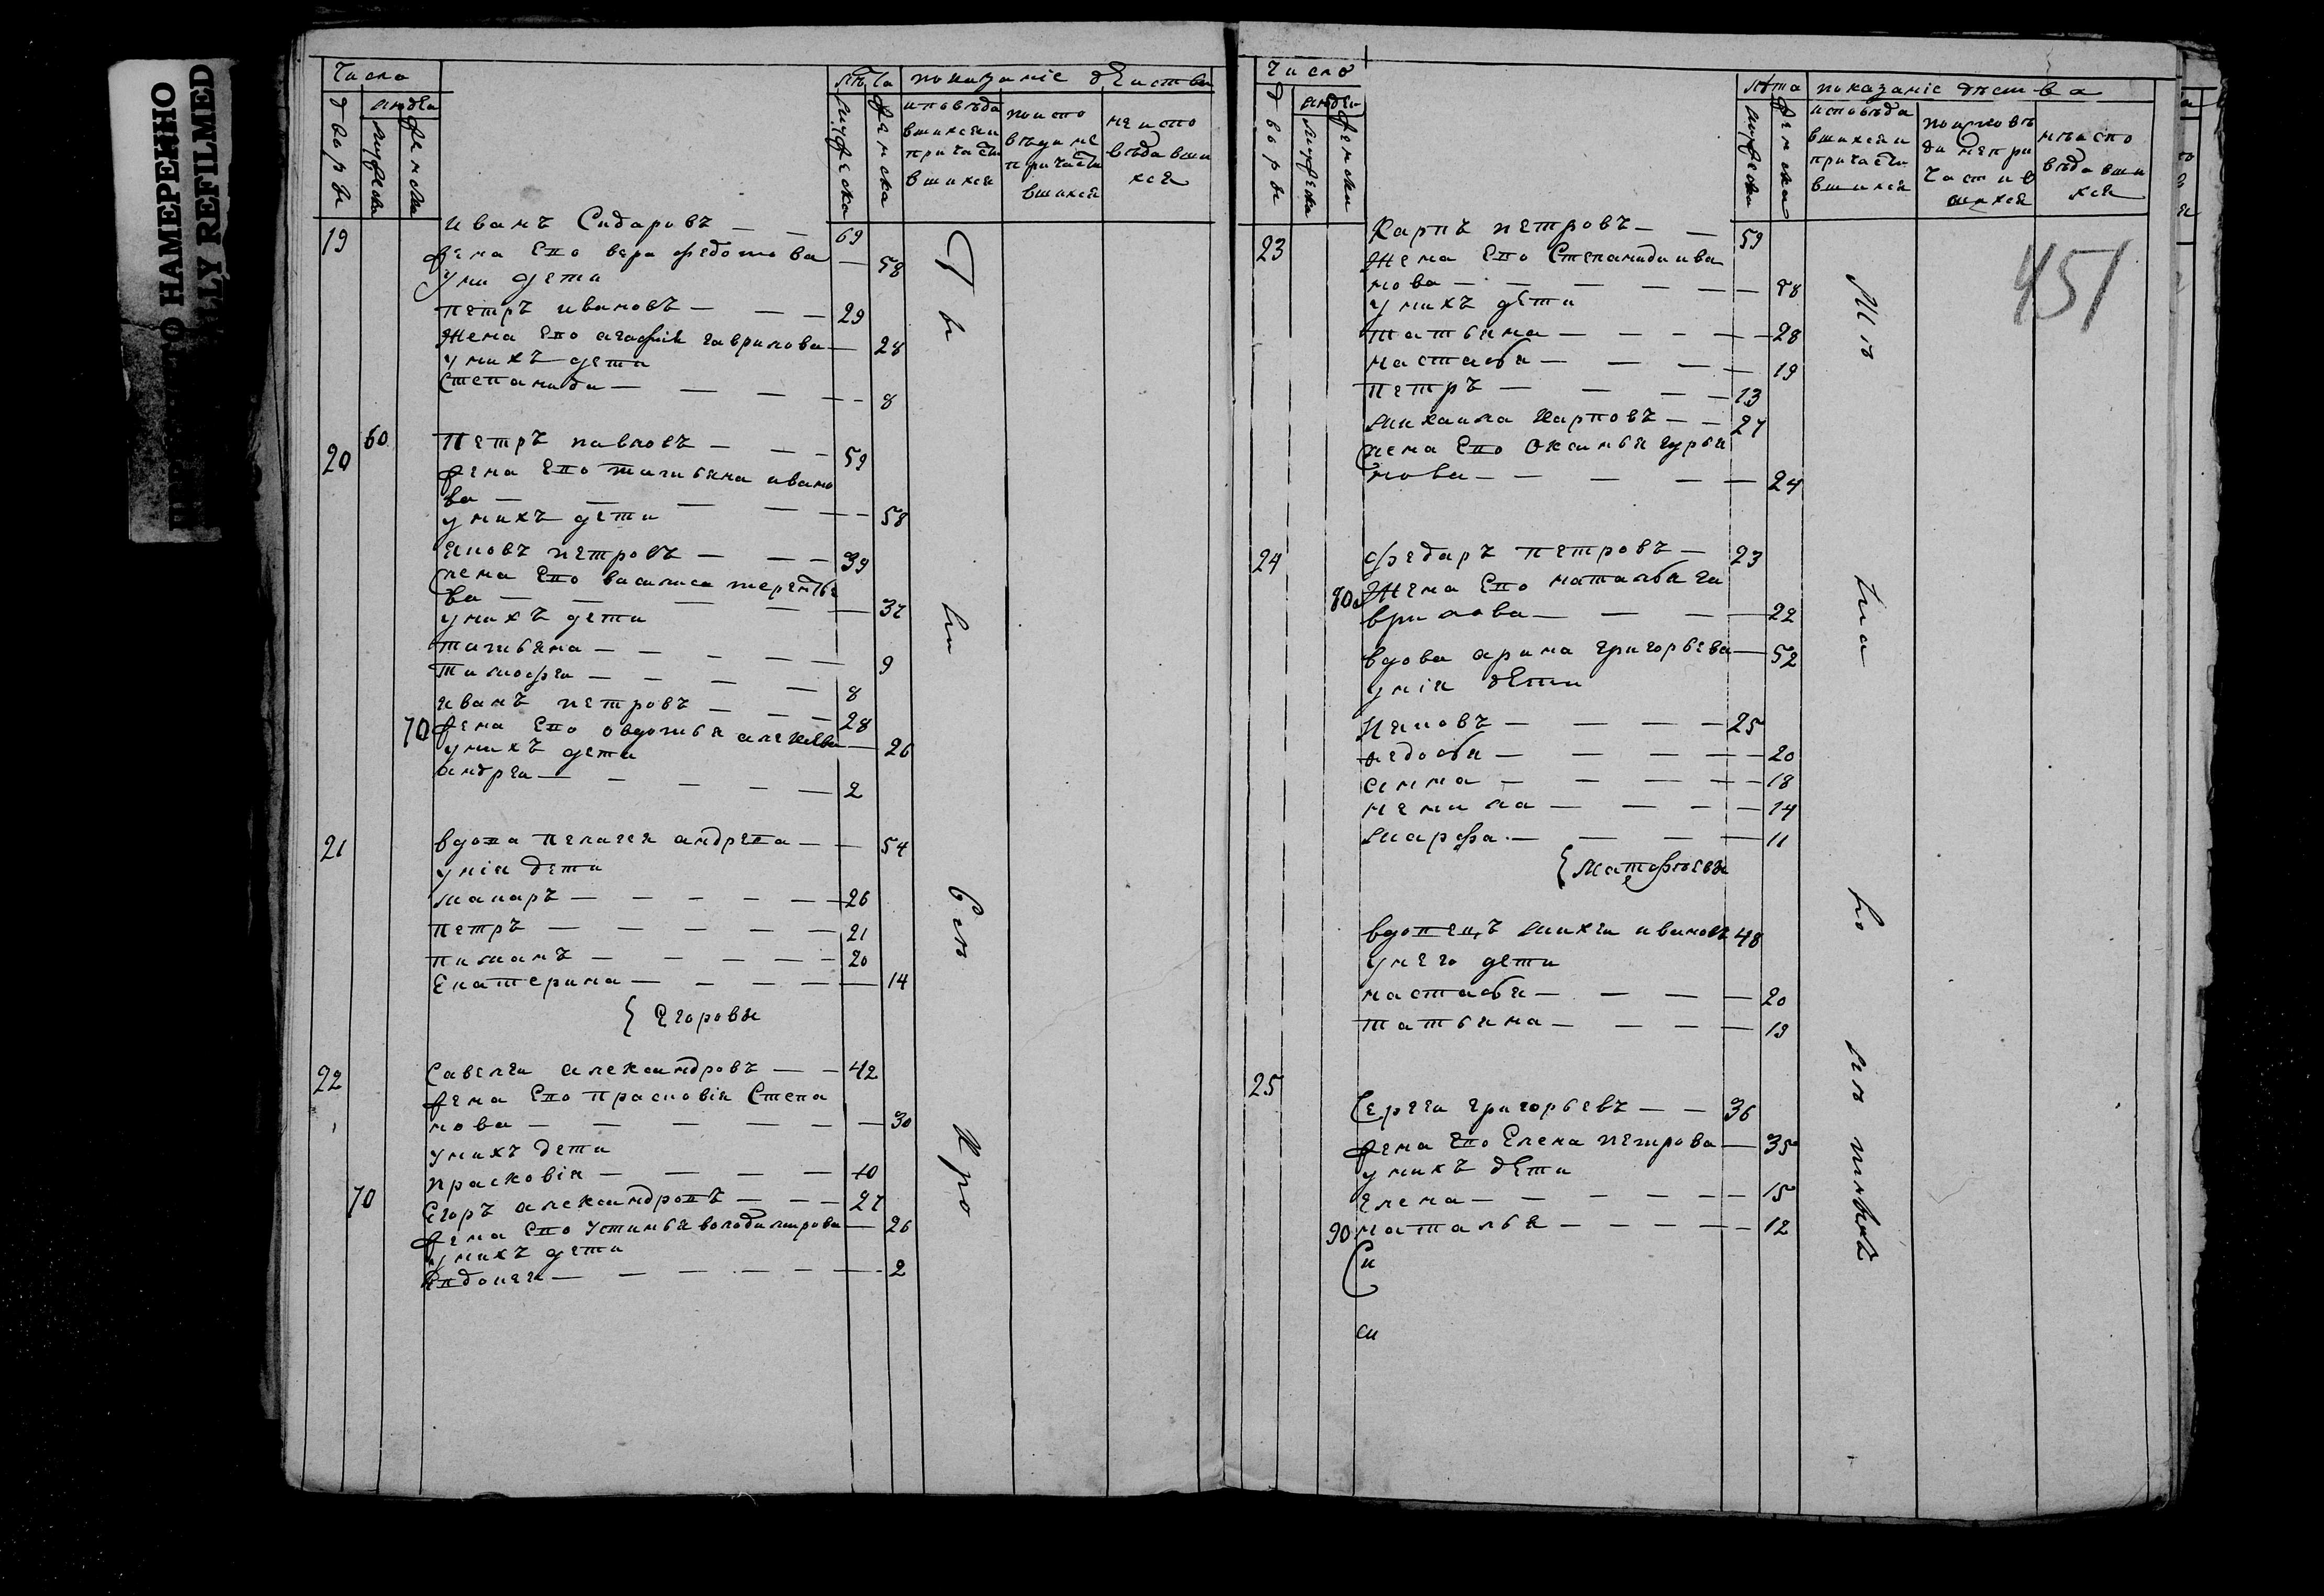 НАМЕРЕННО
LLY REFILMED
число
людеи
дворы
мужеска
женска
лѣта
мужеска
женска
показаніе дѣиства
исповѣда
вшихся и
причасти
вшихся
по испо
вѣди не
причасти
вшихся
не испо
вѣдавши
хся
19
иванъ Сидаровъ — — 69
жена Его вера федотова — 58
у ни дети
петръ ивановъ — — — 29
жена Его агафия гаврилова — 28
у нихъ дети
степанида — — — — 8
20 60
Петръ павловъ — — — 59
жена Его татияна ивано
ва — — — — — 58
у нихъ дети
яковъ петровъ — — — 39
жена Его василиса терентье
ва — — — — — 37
у нихъ дети
татияна — — — — — 9
тимофеи — — — — 8
иванъ петровъ — — — 28
70 жена Его овдотья алексеева — 26
у нихъ дети
андреи — — — — — 2
21
вдова пелагея андрева — — 54
у нія дети
макаръ — — — — — — 26
петръ — — — — — — 21
пиманъ — — — — — 20
Екатерина — — — — — — 14
{ Егоровы
22
Савелеи александровъ — — 42
жена Его прасковія Степа
нова — — — — — — 30
у нихъ дети
прасковія — — — — 10
70
Егоръ александровъ — — — 27
жена Его устинья володимирова — 26
у нихъ дети
Евдокея — — — — — — 2
число
людеи
дворы
мужеска
женска
лѣта
мужеска
женска
показаніе дѣства
исповѣда
вшихся и
причасти
вшихся
по исповѣ
ди непри
частив
шихся
неиспо
вѣдавши
хся
451
23
Карпъ петровъ — — 59
Жена Его Степанида ива
нова — — — — — — 58
у нихъ дѣти
татьяна — — — — — 28
настасья — — — — — 19
петръ — — — — 13
михаила карповъ — — 27
жена Его Оксинья гурья
нова — — — — — 24
24
федаръ петровъ — 23
80 Жена Его наталья га
врилова — — — — 22
вдова арина григорьева — 52
у нія дети
Яковъ — — — — 25
федосья — — — — — 20
анна — — — — — 18
ненила — — — — 14
марфа — — — — 11
{ Матфѣевы
вдовецъ михеи ивановъ 48
у него дети
настасья — — — — 20
татьяна — — — — 19
25
Сергеи григорьевъ — — 36
жена Его Елена петрова — 35
у нихъ дети
елена — — — — — — 15
90 наталья — — — — — 12